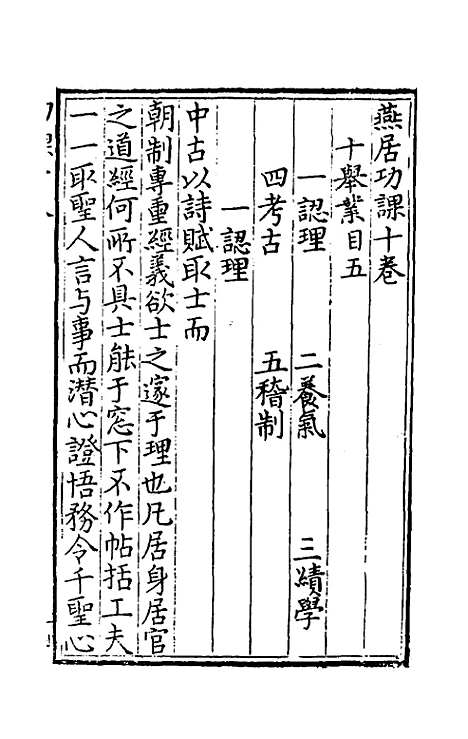 燕居功課十卷
十舉業目五
一認理 二養氣 三績學
四考古 五稽制
一認理
中古以詩賦取士而
朝制專重經義欲士之邃于理也凡居身居官
之道經何所不具士能于窓下不作帖括工夫
一一取聖人言与事而潛心證悟務令千聖心